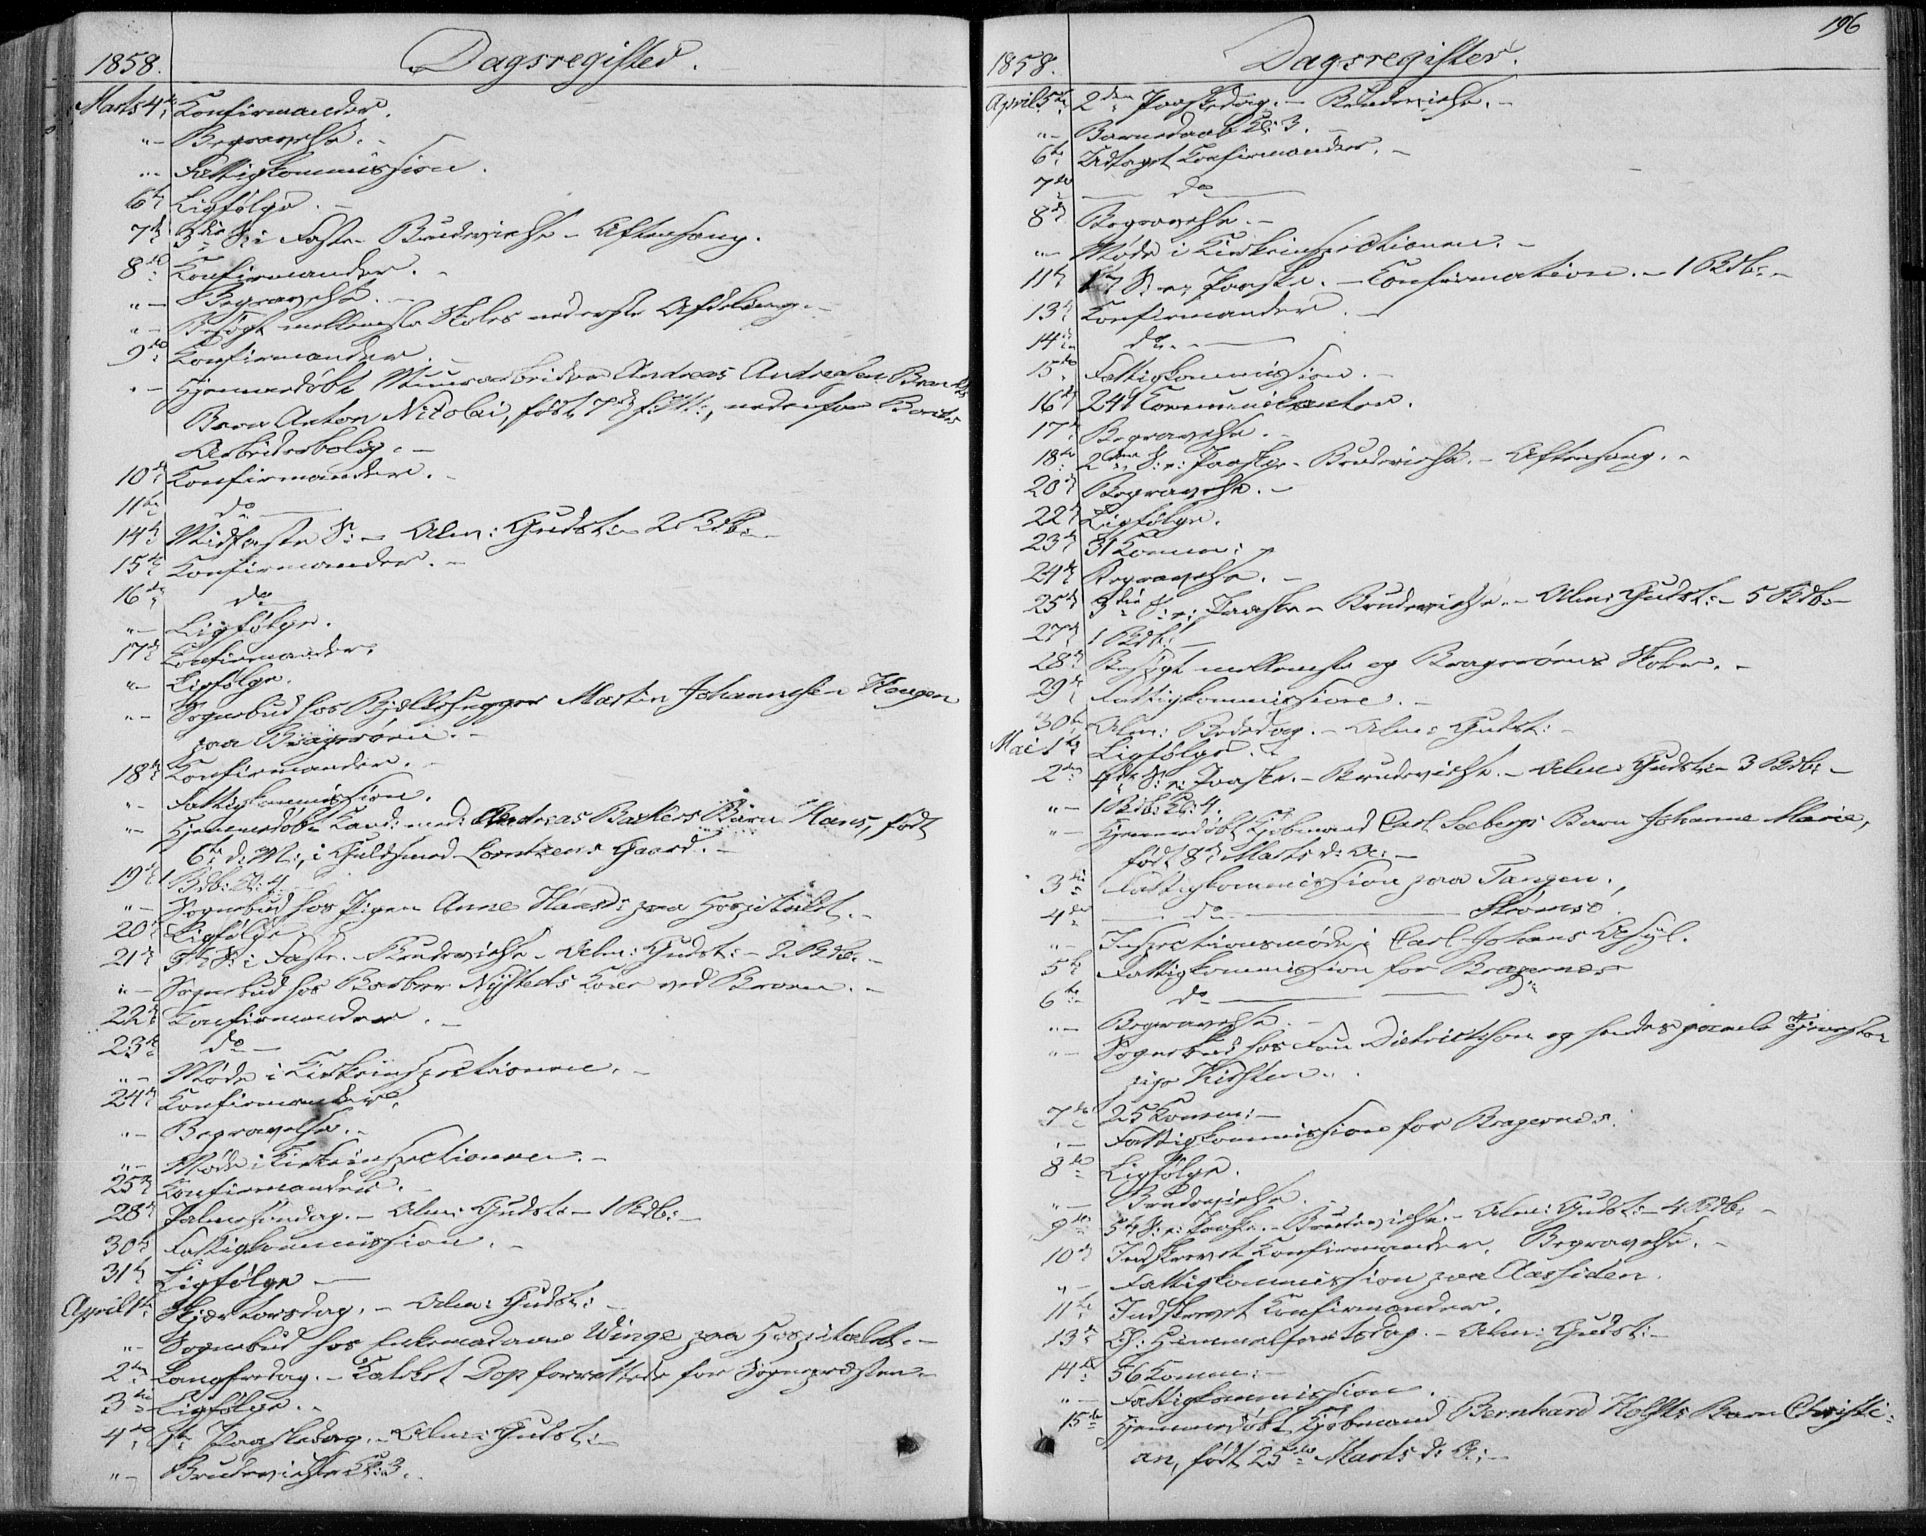 1858. Dagsregister.
Marts 4de Konfirmander.
"– Begravelse. –
"– Fattigkommission.
6te Ligfølge. –
7de 3die S: i Faste – Brudevielse – Aftensang.
8de Konfirmander. –
"– Begravelse. –
"– Besøgt mellemste Skoles nederste Afdeling. –
9de Konfirmander. –
"– Hjemmedøbt Andreas Andreasen
Barn Anton Nicolai, født 7de
Arbeiderbolig. –
10de Konfirmander. –
11te do –
14de Midfaste S: – Alm: Gudst: – 2 Bdb: –
15de Konfirmander. –
16de do –
"– Ligfølge.
17de Konfirmander.
"– Ligfølge.
"– Sognebud hos Martin Johannesen Haugen
paa Bragerøen. –
18de Konfirmander. –
"– Fattigkommission.
"– Hjemmedøbt Kand: med: Andreas Backers Barn Hans, født
6te d: M:, i Guldsmed Lorntzens Gaard. –
19de 1 Bdb: Kl: 4.
"– Sognebud hos Pigen Anne Hansd: paa Hospitalet. –
20de Ligfølge
21de 5te S: i Faste – Brudevielse – Alm: Gudst: – 2 Bdb: –
"– Sognebud hos Barber Nysteds Kone ved Broen. –
22de Konfirmander. –
23de do –
"– Møde i Kirkeinspectionen. –
24de Konfirmander.
"– Begravelse. –
"– Møde i Kirkeinspectionen. –
25de Konfirmander.
28de Palmesøndag. – Alm: Gudst: – 1 Bdb: –
30te Fattigkommission. –
31te Ligfølge –
April 1ste Skjærtorsdag. – Alm: Gudst: –
"– Sognebud hos Enkemadame Winge paa Hospitalet. –
2den Langfredag. – Kaldet Dop forrettede for Sognepræsten –
3die Ligfølge. –
4de 1ste Paaskedag. – Alm: Gudst: –
"– Brudevielse Kl: 3.
196
1858. Dagsregister.
April 5te 2den Paaskedag. – Brudevielse. –
"– Barnedaab Kl: 3. –
6te Udtaget Konfirmander. –
7de do
8de Begravelse. –
"– Møde i Kirkeinspectionen. –
11te 1ste S: e: Paaske. – Confirmation. – 1 Bdb: –
13de Konfirmander. –
14de do –
15de Fattigkommission. –
16de 241 Communikanter.
17de Begravelse. –
18de 2den S: e: Paaske – Brudevielse. – Aftensang. –
20de Begravelse. –
22de Ligfølge.
23de 31 Komm:
24de Begravelse. –
25de 3die S: e: Paaske – Brudevielse. – Alm: Gudst: – 5 Bdb: –
27de 1 Bdb: –
28de Besøgt mellemste og Bragerøens Skoler. –
29de Fattigkommission. –
30te Alm: Bededag. – Alm: Gudst: –
Mai 1ste Ligfølge. –
2den 4de S: e: Paaske. – Brudevielse. – Alm: Gudst: – 3 Bdb: –
"– 1 Bdb: Kl: 4.
"– Hjemmedøbt Kjøbmand Carl Seebergs Barn Johanne Marie,
født 8de Marts d: A: –
3die Fattigkommission paa Tangen.
4de do Strømsø.
"– Inspectionsmøde i Carl-Johans Asyl.
5te Fattigkommission for Bragernes
6te do "
"– Begravelse. –
"– Sognebud hos Fru Dietrichson og hendes gamle
pige Kirsten. –
7de 25 Komm: –
"– Fattigkommission for Bragernes.
8de Ligfølge.
"– Brudevielse. –
9de 5te S: e: Paaske. – Brudevielse. – Alm: Gudst: – 4 Bdb: –
10de Indskrevet Konfirmander. Begravelse. –
"– Fattigkommission paa Aassiden.
11te Indskrevet Konfirmander.
13de Chr: Himmelfartsdag. – Alm: Gudst: –
14de 56 Komm: –
"– Fattigkommission.
15de Hjemmedøbt Kjøbmand Bernhard Holsts Barn Christi-
an, født 25de Marts d: A: –